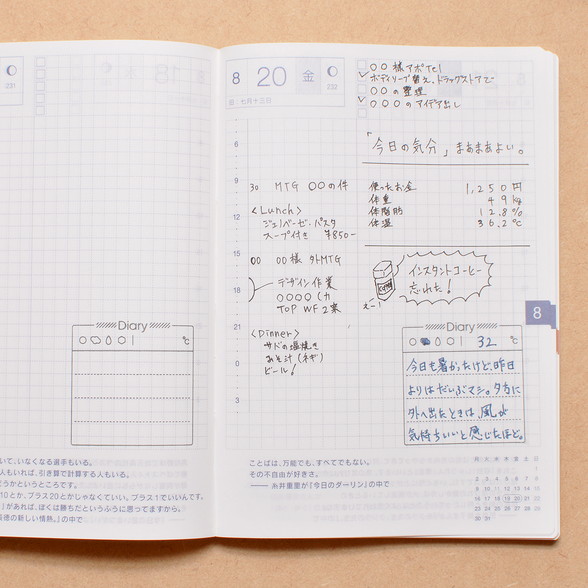 231
8 20 金
旧、七月十三日
232
○○様アポTel
ボディソープ替え、ドラッグストアで
○○の整理
○○○のアイデア出し
「今日の気分」まあまあよい。
6
9
12
15
18
21
0
3
30 MTG ○○の件
<Lunch>
ジェノベーゼ・パスタ
スープ付き ¥850-
00 ○○様 外MTG
デザイン作業
TOP WF2案
<Dinner>
サバの塩焼き
みそ汁(ネギ)
ビール!
使ったお金 1,250円
体重 49kg
体脂肪 12.8%
体温 36.2℃
インスタントコーヒー
忘れた!
えー!
8
Diary
℃
Diary
32 ℃
今日も暑かったけど、昨日
よりはだいぶマシ。夕方に
外へ出たときは、風が
気持ちいいと感じたほど。
いて、いなくなる選手もいる。
人もいれば、引き算で計算する人もいる。
どうかというところです。
10とか、プラス20とかじゃなくていい。プラス1でいいんです。
」があれば、ぼくは勝ちだというふうに思ってますから。
の新しい情熱。』の中で
ことばは、万能でも、すべてでもない。
その不自由が好きさ。
── 糸井重里が『今日のダーリン』の中で
月 火 水 木 金 土 日
1
2 3 4 5 6 7 8
9 10 11 12 13 14 15
16 17 18 19 20 21 22
23 24 25 26 27 28 29
30 31